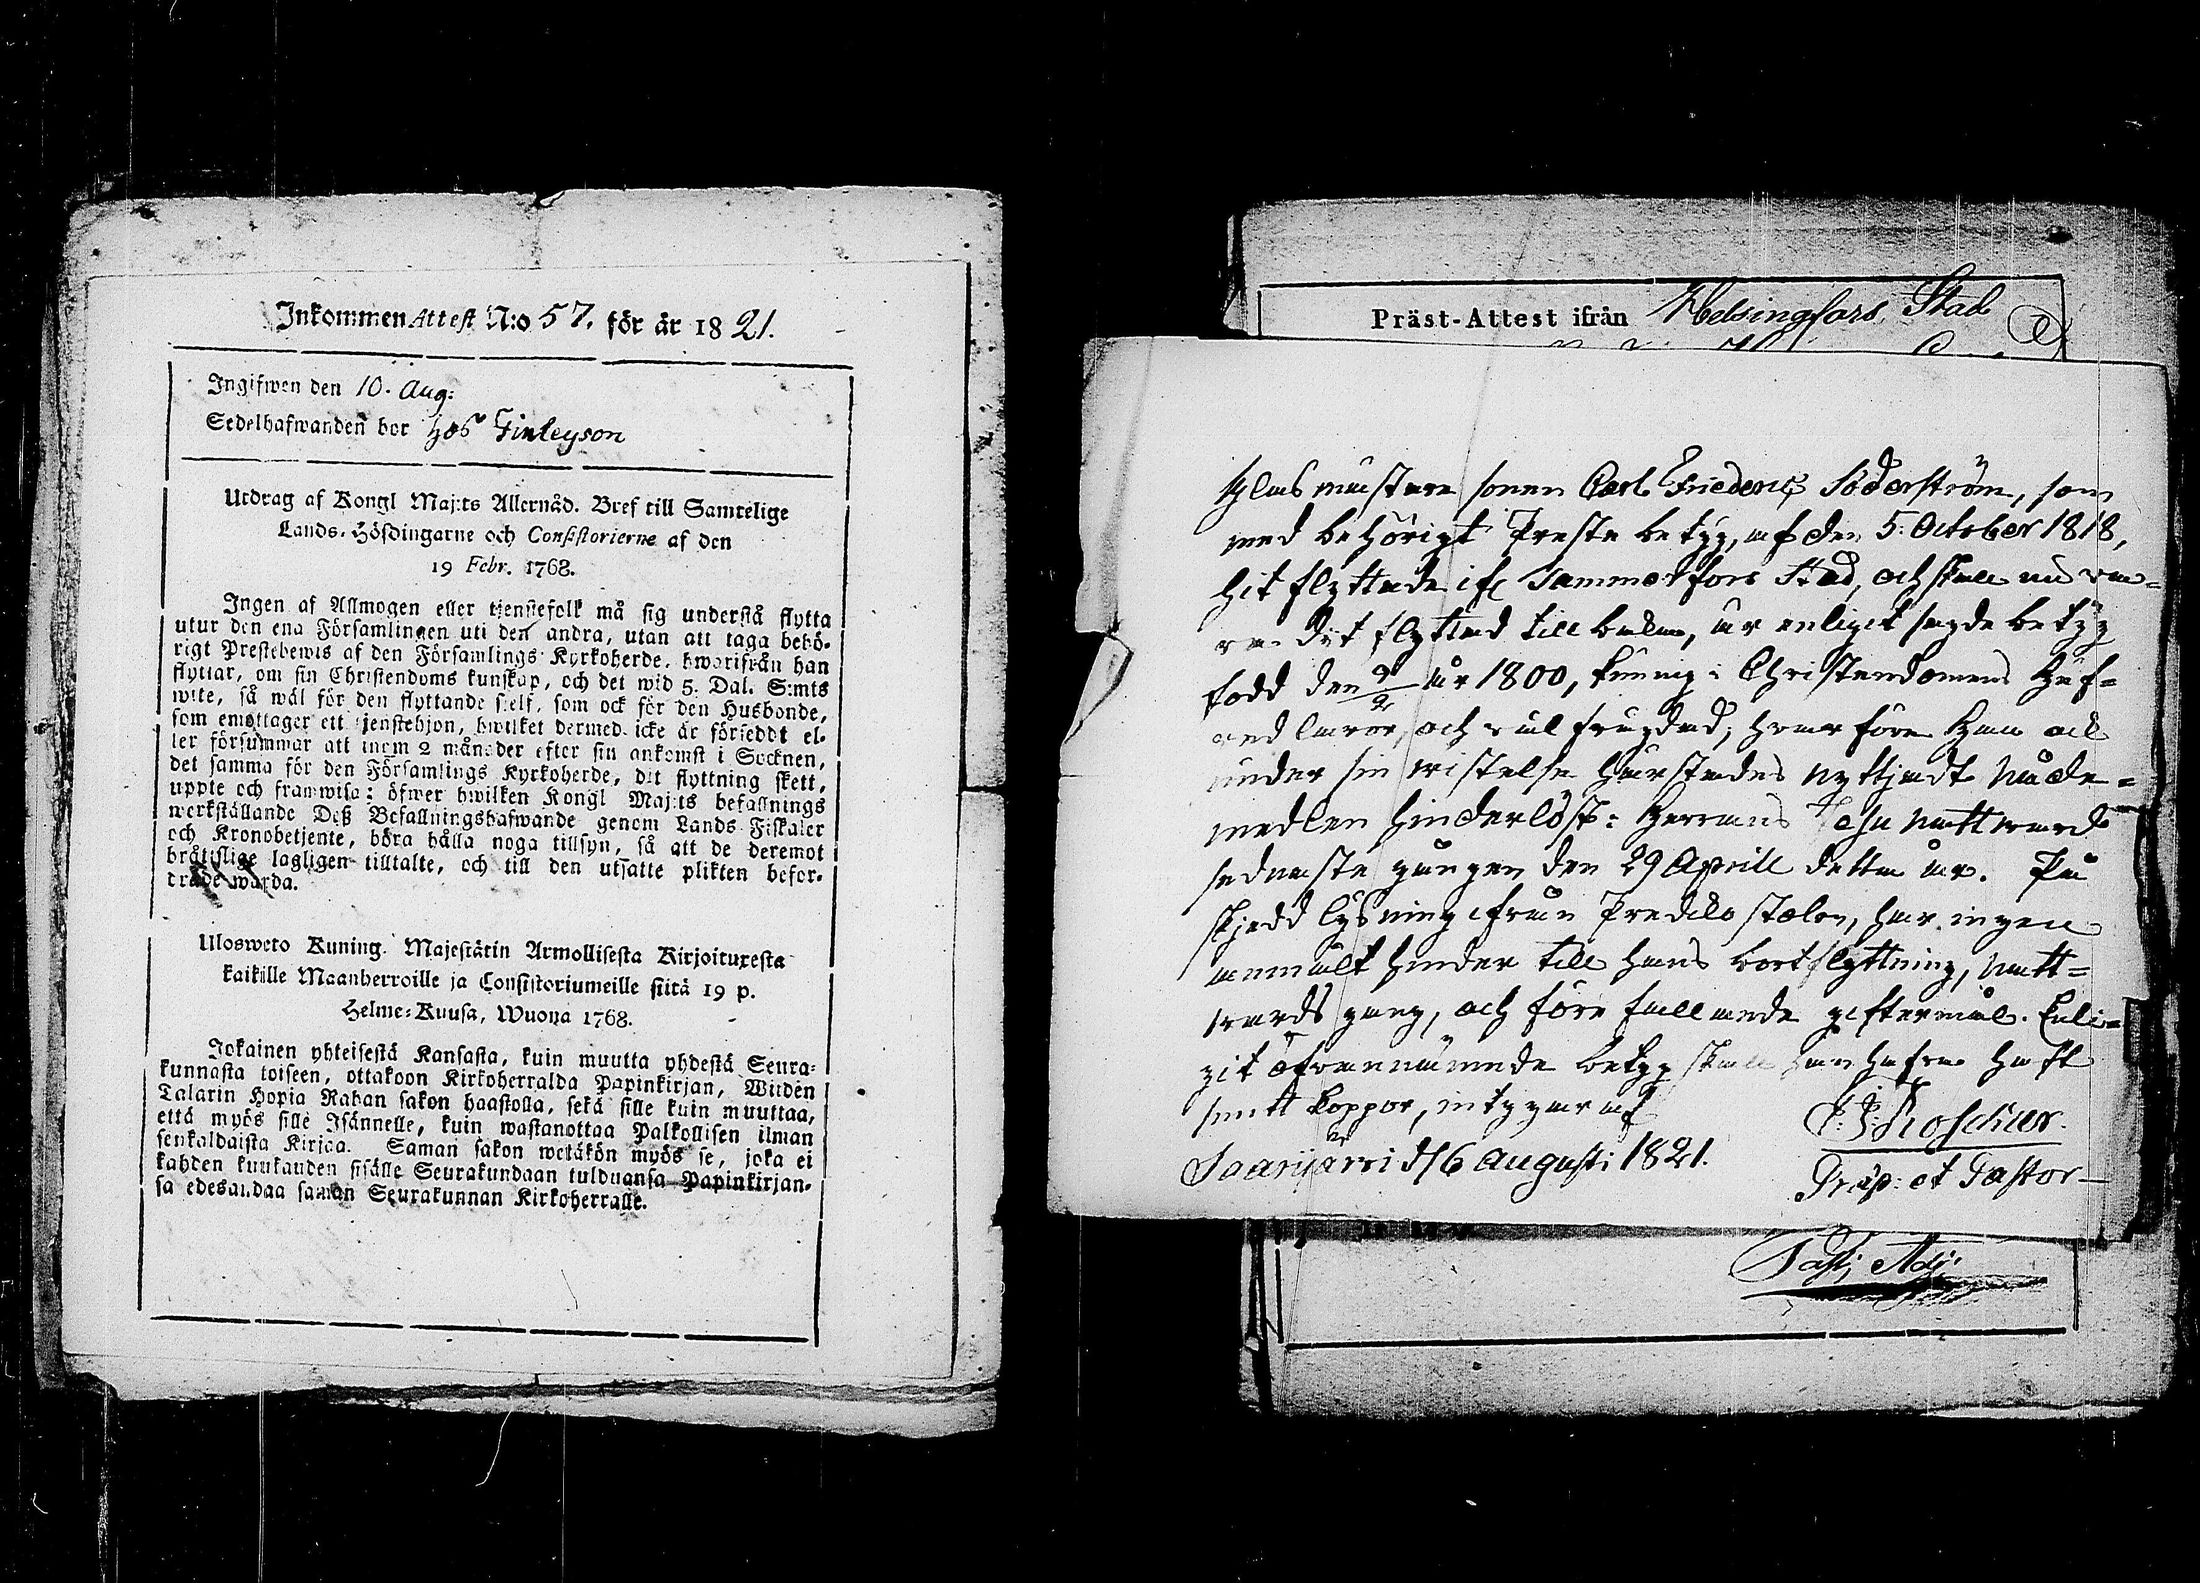 Inkommen Attest N:o 57. för år 1821.
Ingifwen den 10. Aug:
Sedelhafwanden bor hos Finleyson
Utdrag af Kongl Maj:ts Allernåd. Bref till Samtelige
Lands-Höfdingarne och Consistorierne af den
19 Febr. 1768.
Ingen af Allmogen eller tjenstefolk må sig understå flytta
utur den ena Församlingen uti den andra, utan att taga behö-
rigt Prestebewis af den Församlings Kyrkoherde, hwarifrån han
flyttar, om sin Christendoms kunskap, och det wid 5. Dal. S:mts
wite, så wäl för den flyttande sjelf, som ock för den Husbonde,
som emottager ett tjenstehjon, hwilket dermed icke är förseddt el-
ler försummar att inom 2 månader efter sin ankomst i Socknen,
det samma för den Församlings Kyrkoherde, dit flyttning skett,
uppte och framwisa: öfwer hwilken Kongl Maj:ts befallnings
werkställande Deß Befallningshafwande genom Lands Fiskaler
och Kronobetjente, böra hålla noga tillsyn, så att de deremot
bråtislige lagligen tilltalte, och till den utsatte plikten befor-
drade warda.
Ulosweto Kuning. Majestätin Armollisesta Kirjoituxesta
kaikille Maanherroille ja Consistoriumeille siitä 19 p.
Helme-Kuusa, Wuonna 1768.
Jokainen yhteisestä Kansasta, kuin muutta yhdestä Seura-
kunnasta toiseen, ottakoon Kirkoherralda Papinkirjan, Wiiden
Talarin Hopia Rahan sakon haastolla, sekä sille kuin muuttaa,
että myös sille Isännelle, kuin wastanottaa Palkollisen ilman
senkaldaista Kirjaa. Saman sakon wetäkön myös se, joka ei
kahden kuukauden sisälle Seurakundaan tulduansa Papinkirjan-
sa edesandaa saman Seurakunnan Kirkoherralle.
Präst-Attest ifrån Helsingfors Stad
Glasmästare sonen Carl Friederic Söderström, som
med behörigt Preste betyg, af den 5. October 1818,
hit flyttade ifr Tammerfors Stad, och skall nu va-
ra dit flyttad tillbaka, är enligt sagde betyg
född den 9/2 år 1800, kunnig i Christendomens Huf-
vudläror, och väl frejdad; hvarföre Han ock
under sin vistelse härstädes nyttjadt Nåde-
medlen hinderlöst: Herrans Jesu Nattvard
sednaste gången den 29 Aprill detta år. På
skjedd lysning ifrån Predikostolen, har ingen
anmält hinder till hans bortflyttning, natt-
vards gang, och före fallande giftermål. Enli-
git ofvannämnde betyg skall han hafva haft
smitt koppor, intygar af
Saarijärvi d 6 Augusti 1821.
Roschier.
Præp: et Pastor
Past: Adj: